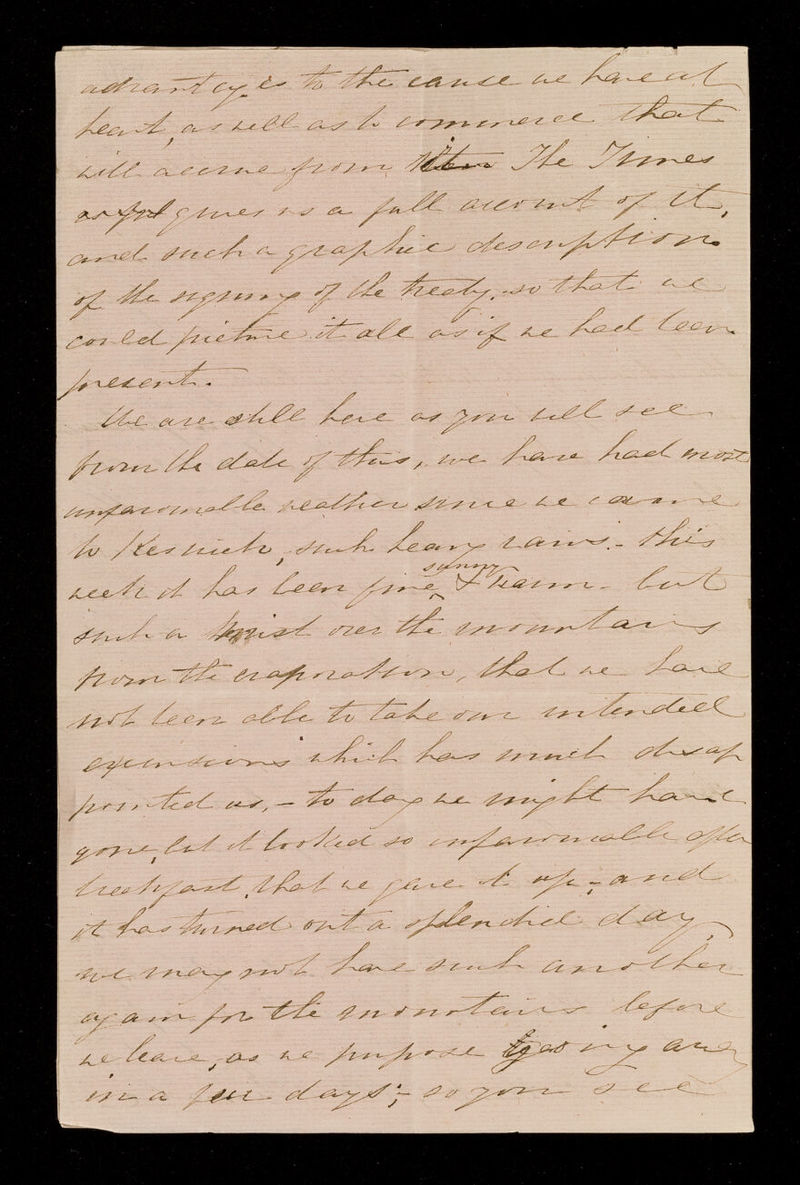 advantages to the cause we have at
heart, as well as to commerce that
will accrue from The Times
gives us a full account of it,
and such a graphic description
of the signing of the treaty, so that we
could picture it all as if we had been
present.
We are still here as you will see
from the date of this, we have had most
unfavourable weather since we came
to Keswick, such heavy rains. - this
week it has been fine sunny & warm - but
such a mist over the mountains
from the evaporation, that we have
not been able to take our intended
excursions which has much disap
pointed us, - to day we might have
gone, but it looked so unfavourable after
breakfast, that we gave it up; - and
it has turned out a splendid day,
we may not have such another
again for the mountains before
we leave, as we purpose going away
in a few days; - so you see